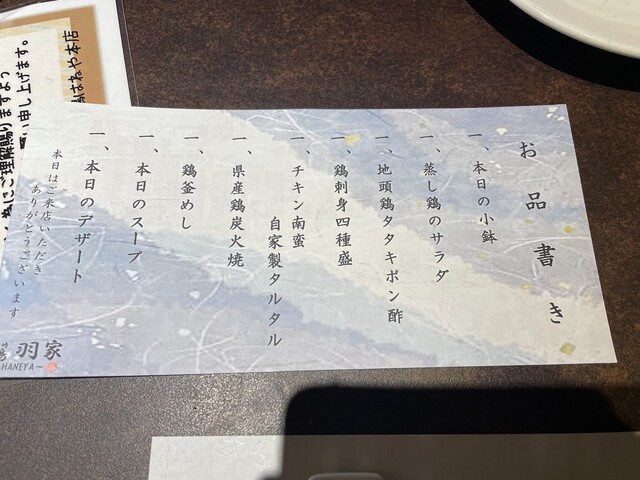 お品書き
一、本日の小鉢
一、蒸し鶏のサラダ
一、地頭鶏タタキポン酢
一、鶏刺身四種盛
一、チキン南蛮
自家製タルタル
一、県産鶏炭火焼
一、鶏釜めし
一、本日のスープ
一、本日のデザート
本日はご来店いただき
ありがとうございます
羽家
HANEYA～
はねや本店
申し上げます。
にご理解賜りますよう